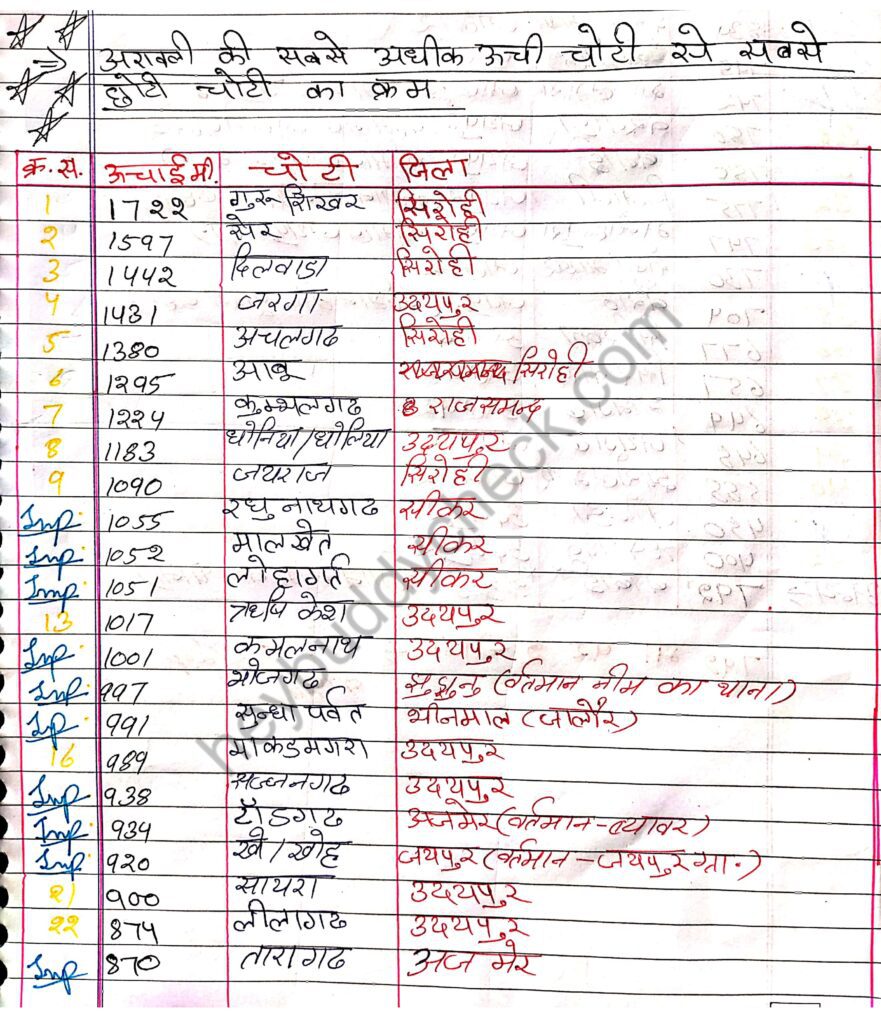 ⇒ अरावली की सबसे अधीक ऊची चोटी से सबसे
छोटी चोटी का क्रम
क्र.स. ऊचाई मी. चोटी जिला
1 1722 गुरु शिखर सिरोही
2 1597 सेर सिरोही
3 1442 दिलवाडा सिरोही
4 1431 जरगा उदयपुर
5 1380 अचलगढ सिरोही
6 1295 आबू सिरोही
7 1224 कुम्भलगढ राजसमन्द
8 1183 धोनिया/धोलिया उदयपुर
9 1090 जयराज सिरोही
Imp. 1055 रघुनाथगढ सीकर
Imp. 1052 मालखेत सीकर
Imp. 1051 लोहागर्त सीकर
13 1017 ऋषि केश उदयपुर
Imp. 1001 कमलनाथ उदयपुर
Imp. 997 भोजगढ झुझुनु (वर्तमान नीम का थाना)
Imp 991 सुन्धा पर्वत भीनमाल (जालौर)
16 989 माकडमगरा उदयपुर
Imp. 938 सज्जनगढ उदयपुर
Imp. 934 टॉडगढ अजमेर (वर्तमान - ब्यावर)
Imp. 920 खो/खोह जयपुर (वर्तमान - जयपुर ग्रा.)
21 900 सायरा उदयपुर
22 874 लीलागढ उदयपुर
Imp 870 तारागढ अजमेर
heybuddycheck.com